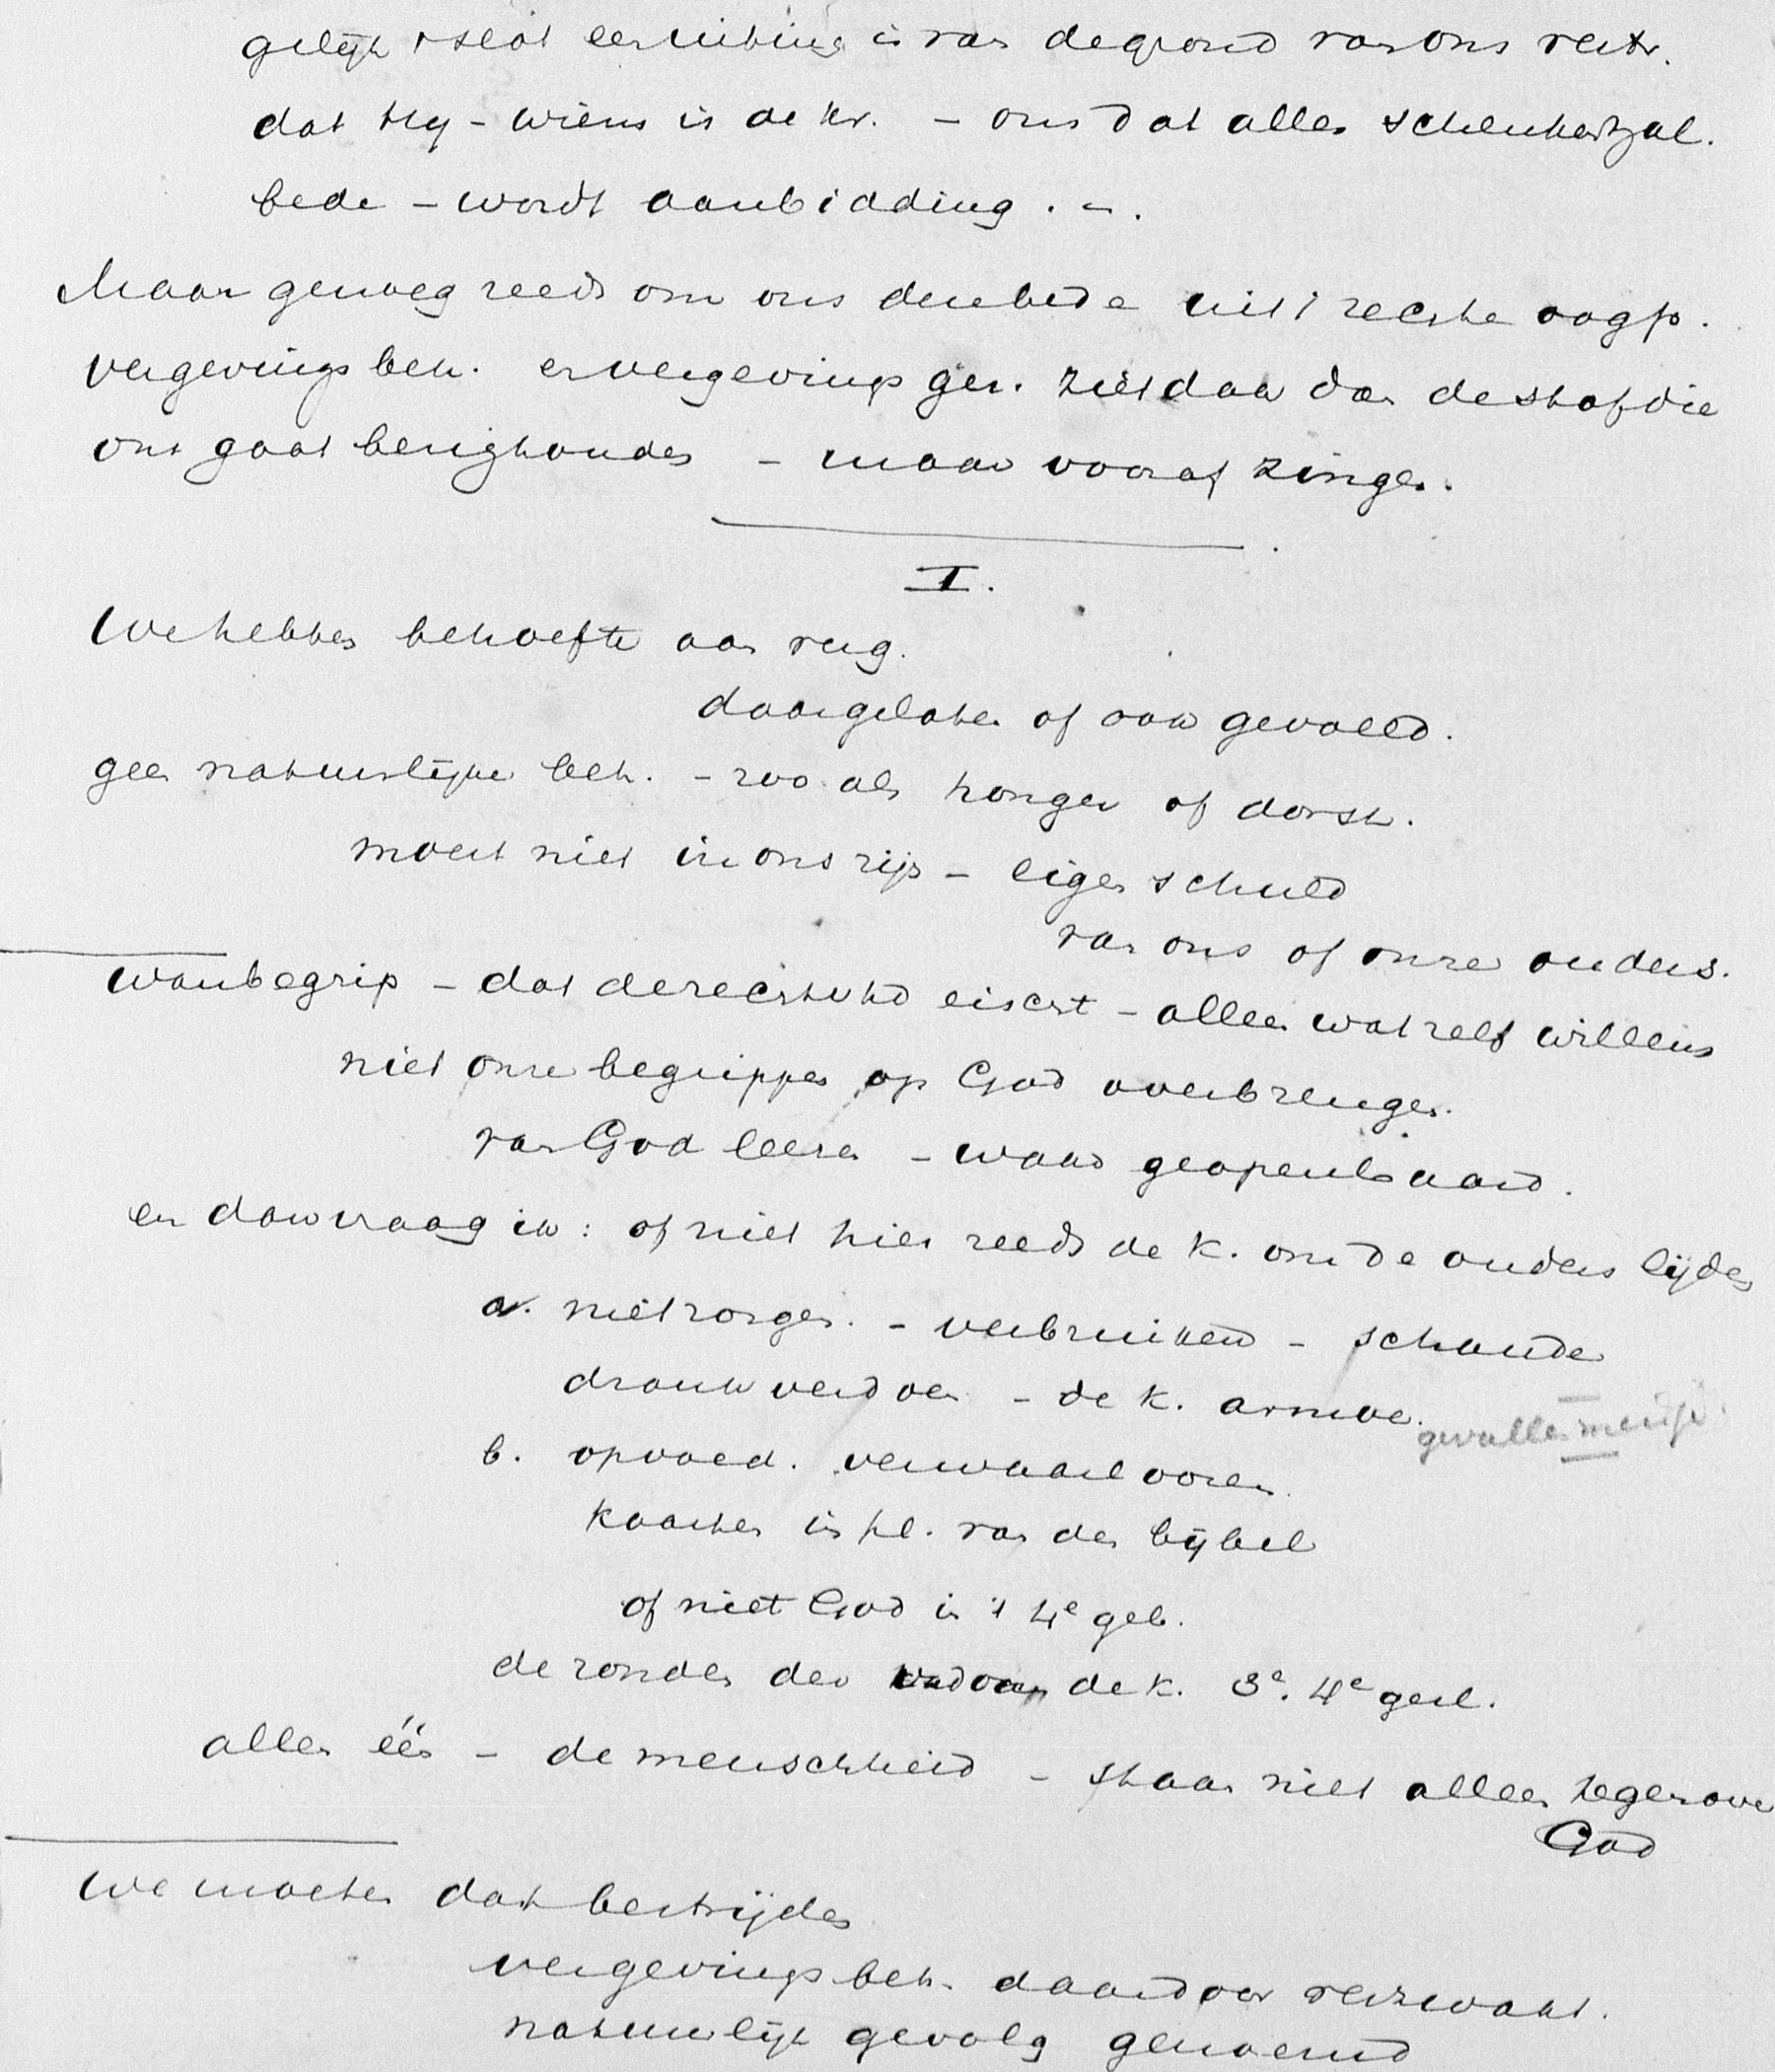 gelijk 't slot een uiting is van de grond van ons vertr.
dat Hij - wiens is de kr. - ons dat alles schenken zal.
bede - wordt aanbidding . - .
Maar genoeg reeds om ons deze bede uit 't rechte oogp.
vergevings beh. en vergevings gez. ziet daar dan de stof die
ons gaat bezighouden - maar vooraf zingen.
I.
We hebben behoefte aan verg.
daargelaten of ook gevoeld.
geen natuurlijke beh. - zoo als honger of dorst.
moest niet in ons zijn - eigen schuld
van ons of onze ouders.
wanbegrip - dat de rechtvhd eischt - alleen wat zelf willens
niet onze begrippen op God overbrengen.
van God leeren - waar geopenbaard.
en dan vraag ik : of niet hier reeds de k. om de ouders lijden
a. niet zorgen. - verbruikend - schande
drank verdoen - de k. armoe.
gevallen mensch.
b. opvoed. verwaarloozen
kaarten in pl. van den bijbel
of niet God in 't 4e geb.
de zonden der vad aan de k. 3e. 4e gesl.
allen één - de menschheid - staan niet alleen tegenover
God
We moeten dat bestrijden
vergevings beh. daardoor verzwakt.
natuurlijk gevolg genoemd